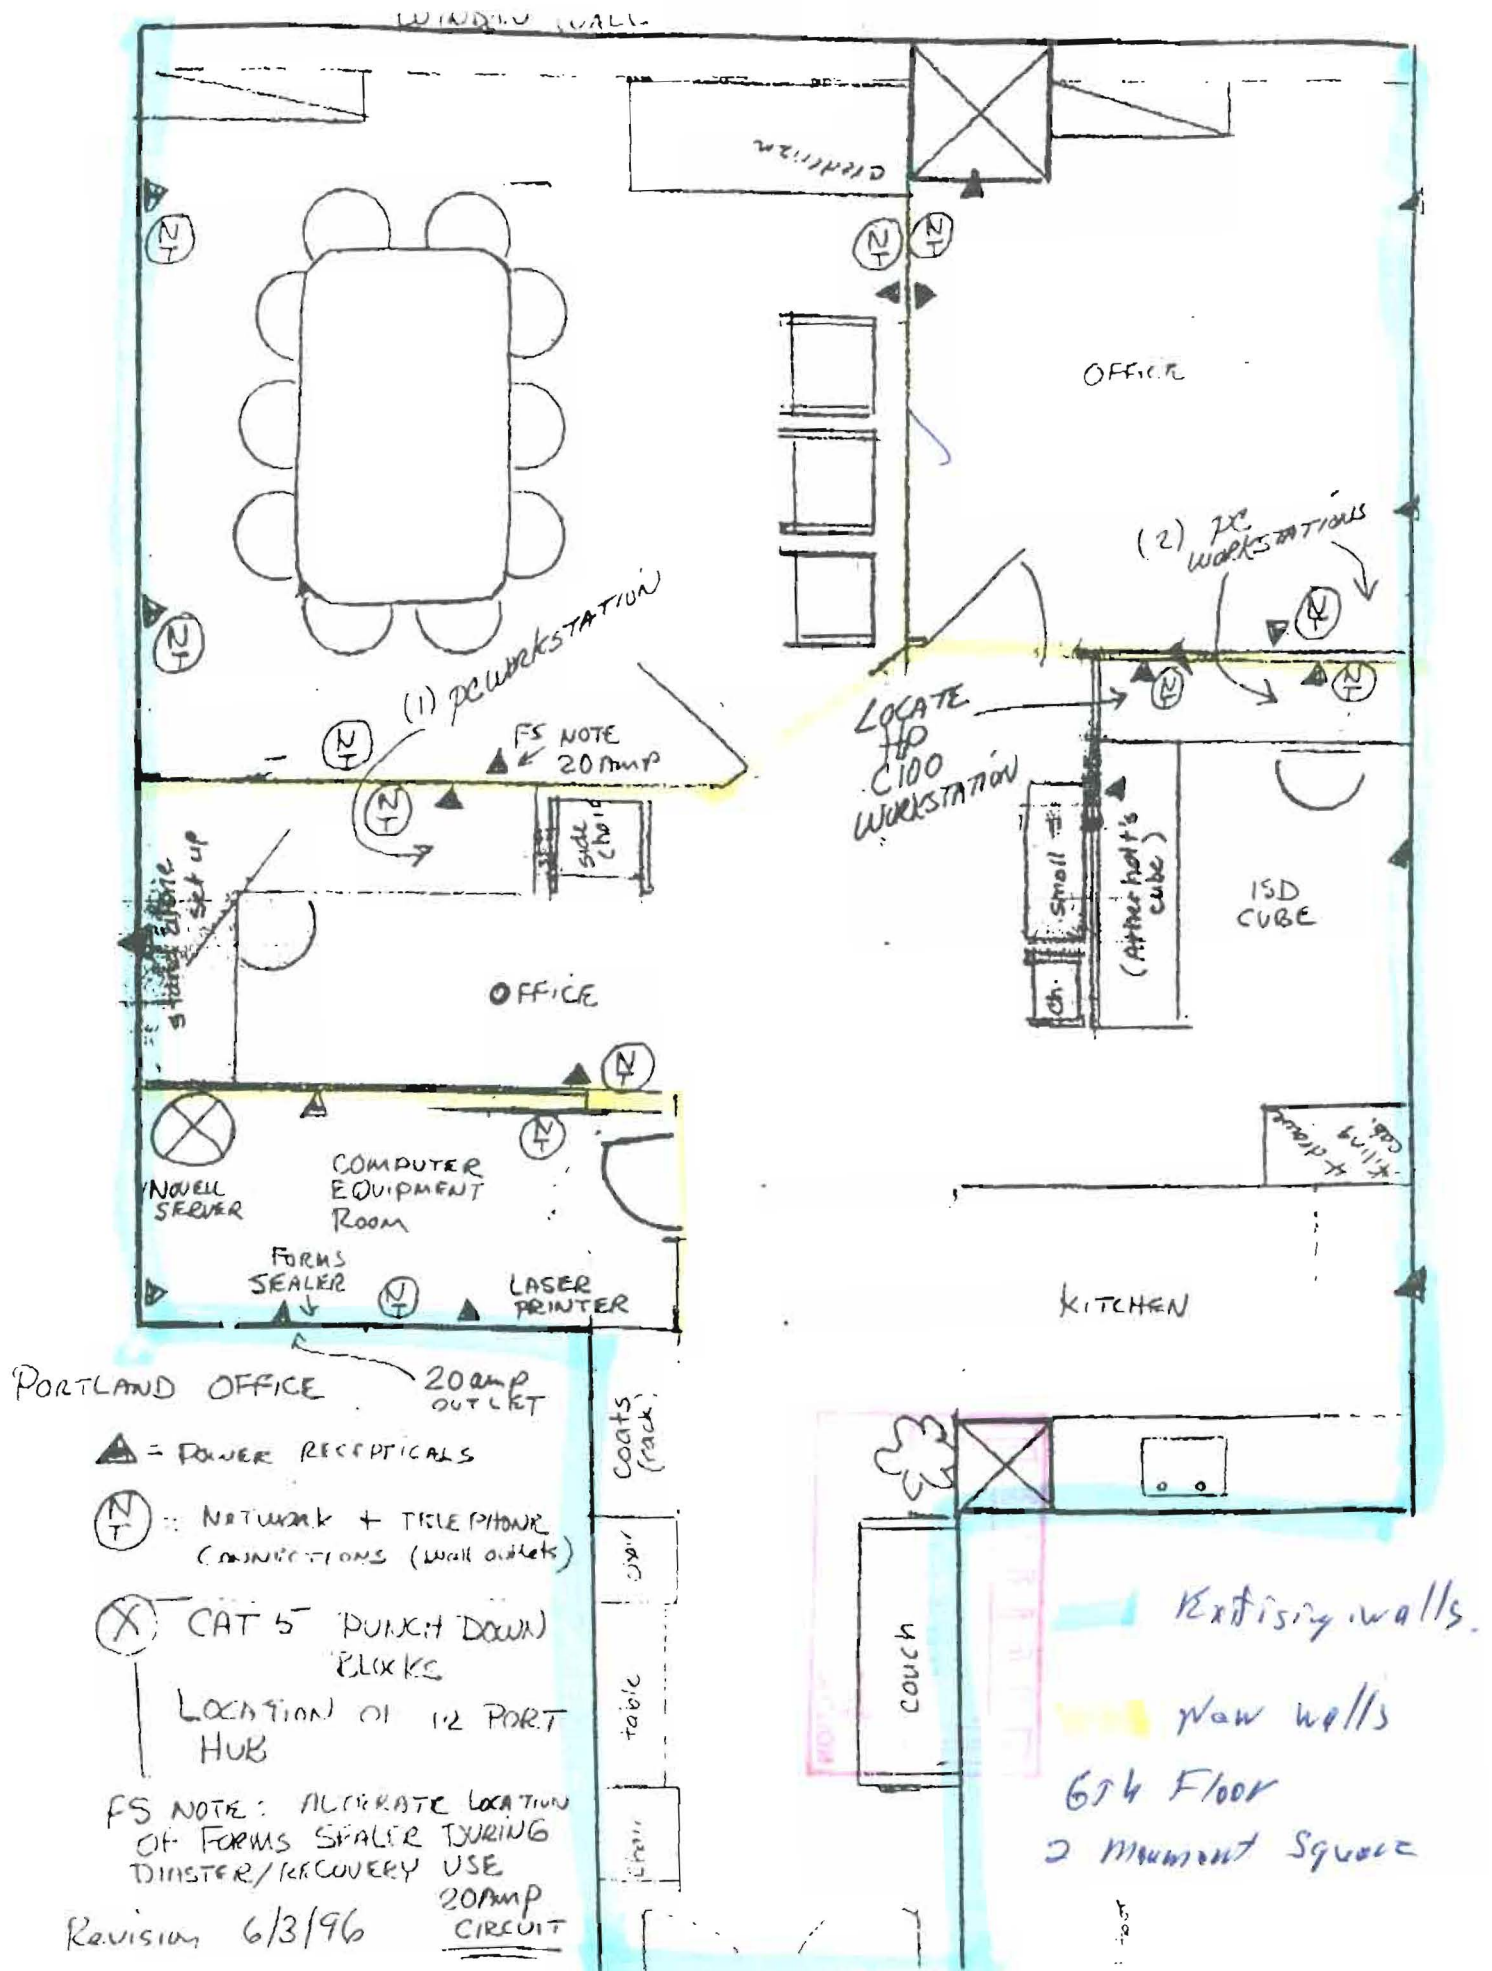 WINDOW WALL
credenza
OFFICE
(2) PC
WORKSTATIONS
(1) PC WORKSTATION
FS NOTE
20 AMP
LOCATE
HP
C100
WORKSTATION
stand alone
set up
side
chair
small
ch.
(Atherholt's
cube)
ISD
CUBE
OFFICE
NOVELL
SERVER
COMPUTER
EQUIPMENT
ROOM
FORMS
SEALER
LASER
PRINTER
4 drawer
filing
cab.
KITCHEN
PORTLAND OFFICE
20 amp
OUTLET
= POWER RECEPTICALS
NT = NETWORK + TELEPHONE
CONNECTIONS (wall outlets)
X CAT 5 PUNCH DOWN
BLOCKS
LOCATION OF 12 PORT
HUB
FS NOTE: ALTERRATE LOCATION
OF FORMS SEALER DURING
DIASTER/RECOVERY USE
20 AMP
CIRCUIT
Revision 6/3/96
coats
(rack)
chair
table
chair
couch
Extisisg walls.
New walls
6th Floor
2 Monument Square
NT
NT
NT
NT
NT
NT
NT
NT
NT
NT
NT
NT
NT